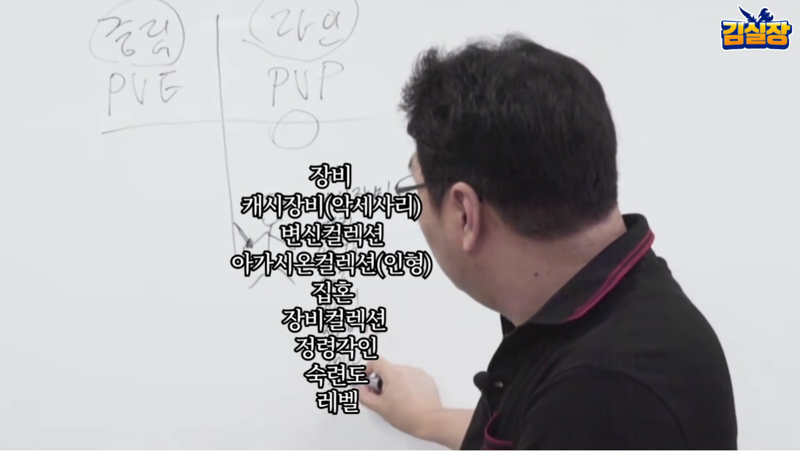 김실장
중립
라인
PVE
PVP
장비
캐시장비(악세사리)
변신컬렉션
아가시온컬렉션(인형)
집혼
장비컬렉션
정령각인
숙련도
레벨